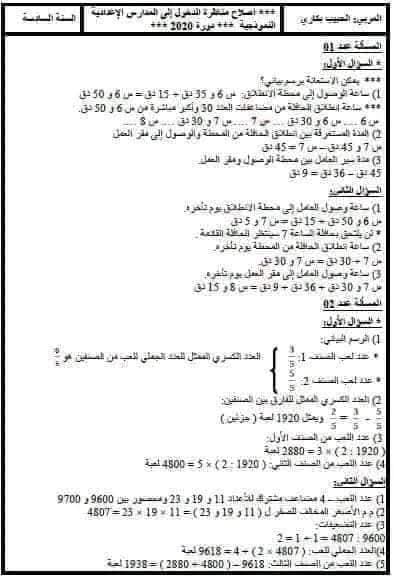 المربي: الحبيب بكاري
*** اصلاح مناظرة الدخول إلى المدارس الإعدادية النموذجية *** دورة 2020 ***
السنة السادسة
المسألة عدد 01
* السؤال الأول:
*** يمكن الاستعانة برسم بياني؟
1) ساعة الوصول إلى محطة الانطلاق: س 6 و 35 دق + 15 دق = س 6 و 50 دق
*** ساعة إنطلاق الحافلة من مضاعفات العدد 30 وأكبر مباشرة من س 6 و 50 دق.
س 6 .... س 6 و 30 دق ... س 7 .... س 7 و 30 دق .... س 8 ....
2) المدة المستغرقة بين انطلاق الحافلة من المحطة والوصول إلى مقر العمل
س 7 و 45 دق – س 7 = 45 دق
3) مدة سير العامل بين محطة الوصول ومقر العمل.
45 دق – 36 دق = 9 دق
السؤال الثاني:
1) ساعة وصول العامل إلى محطة الانطلاق يوم تأخره.
س 6 و 50 دق + 15 دق = س 7 و 5 دق
* لن يلتحق بحافلة الساعة 7 سينتظر الحافلة القادمة .
2) ساعة انطلاق الحافلة من المحطة يوم تأخره.
س 7 + 30 دق = س 7 و 30 دق.
3) ساعة وصول العامل إلى مقر العمل يوم تأخره.
س 7 و 30 دق + 36 دق + 9 دق = س 8 و 15 دق
المسألة عدد 02
* السؤال الأول:
1) الرسم البياني:
* عدد لعب الصنف 1: 3/5
العدد الكسري الممثل للعدد الجملي للعب من الصنفين هو
* عدد لعب الصنف 2: 5/5
2) العدد الكسري الممثل للفارق بين الصنفين:
5/5 - 3/5 = 2/5 ويمثل 1920 لعبة ( جزئين )
3) عدد اللعب من الصنف الأول:
( 1920 : 2 ) × 3 = 2880 لعبة
4) عدد اللعب من الصنف الثاني: ( 1920 : 2 ) × 5 = 4800 لعبة
السؤال الثاني:
1) عدد اللعب – 4 مضاعف مشترك للأعداد 11 و 19 و 23 ومحصور بين 9600 و 9700
2) م م الأصغر المخالف للصفر ل ( 11 و 19 و 23 ) = 11 × 19 × 23 = 4807
3) عدد التضعيفات:
9600 : 4807 = 1 + 1 = 2
4) العدد الجملي للعب: ( 4807 × 2 ) + 4 = 9618 لعبة
5) عدد اللعب من الصنف الثالث: 9618 – ( 4800 + 2880 ) = 1938 لعبة